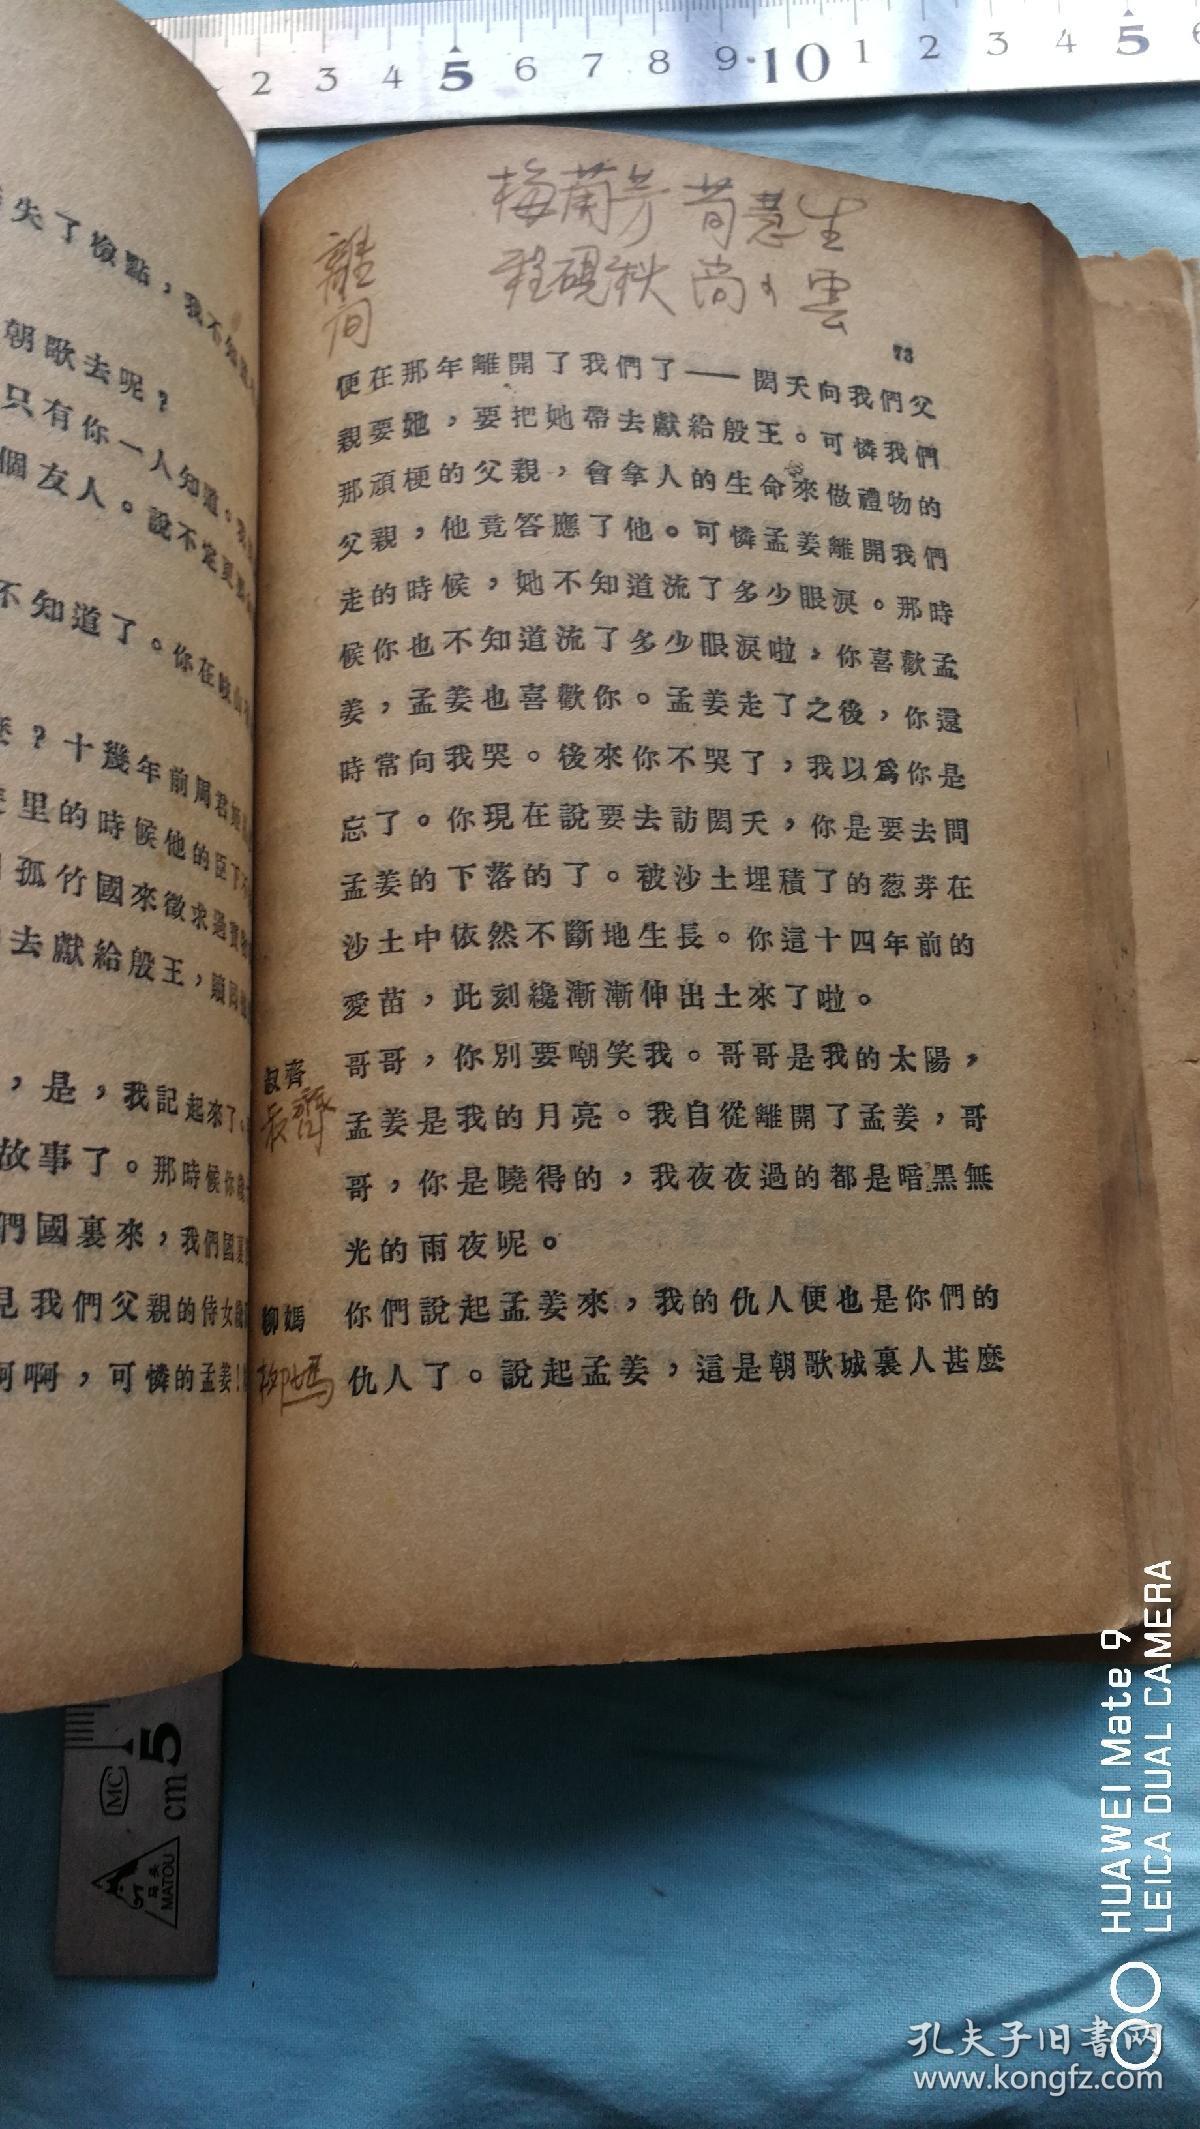 2 3 4 5 6 7 8 9 10 1 2 3 4 5 6
失了檢點，我不知
朝歌去呢？
只有你一人知道。
個友人。說不定更
不知道了。你在岐山
？十幾年前周君
里的時候他的臣下
孤竹國來徵求過寶物
去獻給殷王，
，是，我記起來了
故事了。那時候你
們國裏來，我們國裏
見我們父親的侍女
啊啊，可憐的孟姜！
梅蘭芳 荀慧生
程硯秋 尚小雲
離間
73
便在那年離開了我們了——閎夭向我們父
親要她，要把她帶去獻給殷王。可憐我們
那頑梗的父親，會拿人的生命來做禮物的
父親，他竟答應了他。可憐孟姜離開我們
走的時候，她不知道流了多少眼淚。那時
候你也不知道流了多少眼淚啦，你喜歡孟
姜，孟姜也喜歡你。孟姜走了之後，你還
時常向我哭。後來你不哭了，我以爲你是
忘了。你現在說要去訪閎夭，你是要去問
孟姜的下落的了。被沙土埋積了的葱芽在
沙土中依然不斷地生長。你這十四年前的
愛苗，此刻纔漸漸伸出土來了啦。
叔齊 哥哥，你別要嘲笑我。哥哥是我的太陽，
叔齊
孟姜是我的月亮。我自從離開了孟姜，哥
哥，你是曉得的，我夜夜過的都是暗黑無
光的雨夜呢。
柳媽 你們說起孟姜來，我的仇人便也是你們的
柳媽
仇人了。說起孟姜，這是朝歌城裏人甚麼
5
cm
MC
马头
MATOU
HUAWEI Mate 9
LEICA DUAL CAMERA
孔夫子旧书网
www.kongfz.com